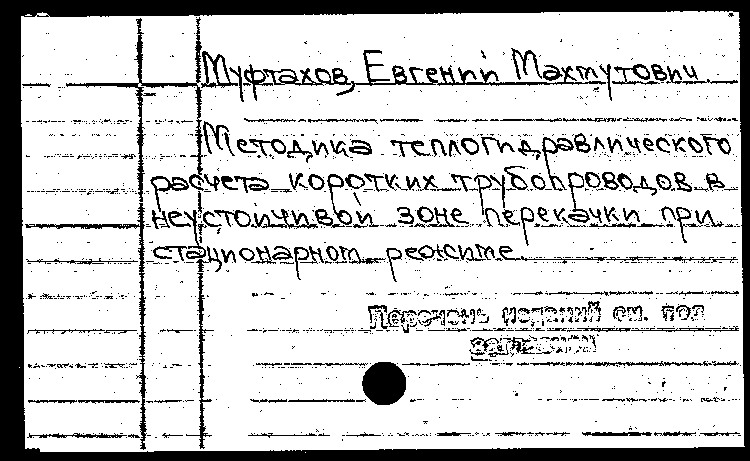 Муфтахов, Евгений Махмутович
Методика теплогидравлического
расчета коротких трубопроводов в
неустойчивой зоне перекачки при
стационарном режиме.
Перечень изданий см. под
заглавием